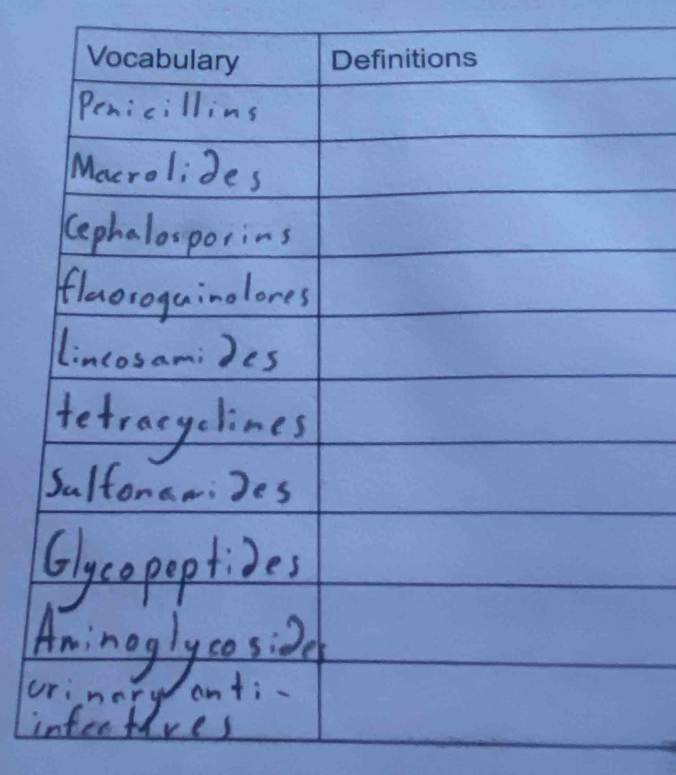 Vocabulary Definitions
Penicillins
Macrolides
Cephalosporins
fluoroquinolones
Lincosamides
tetracyclines
Sulfonamides
Glycopeptides
Aminoglycosides
urinary anti-
infectives